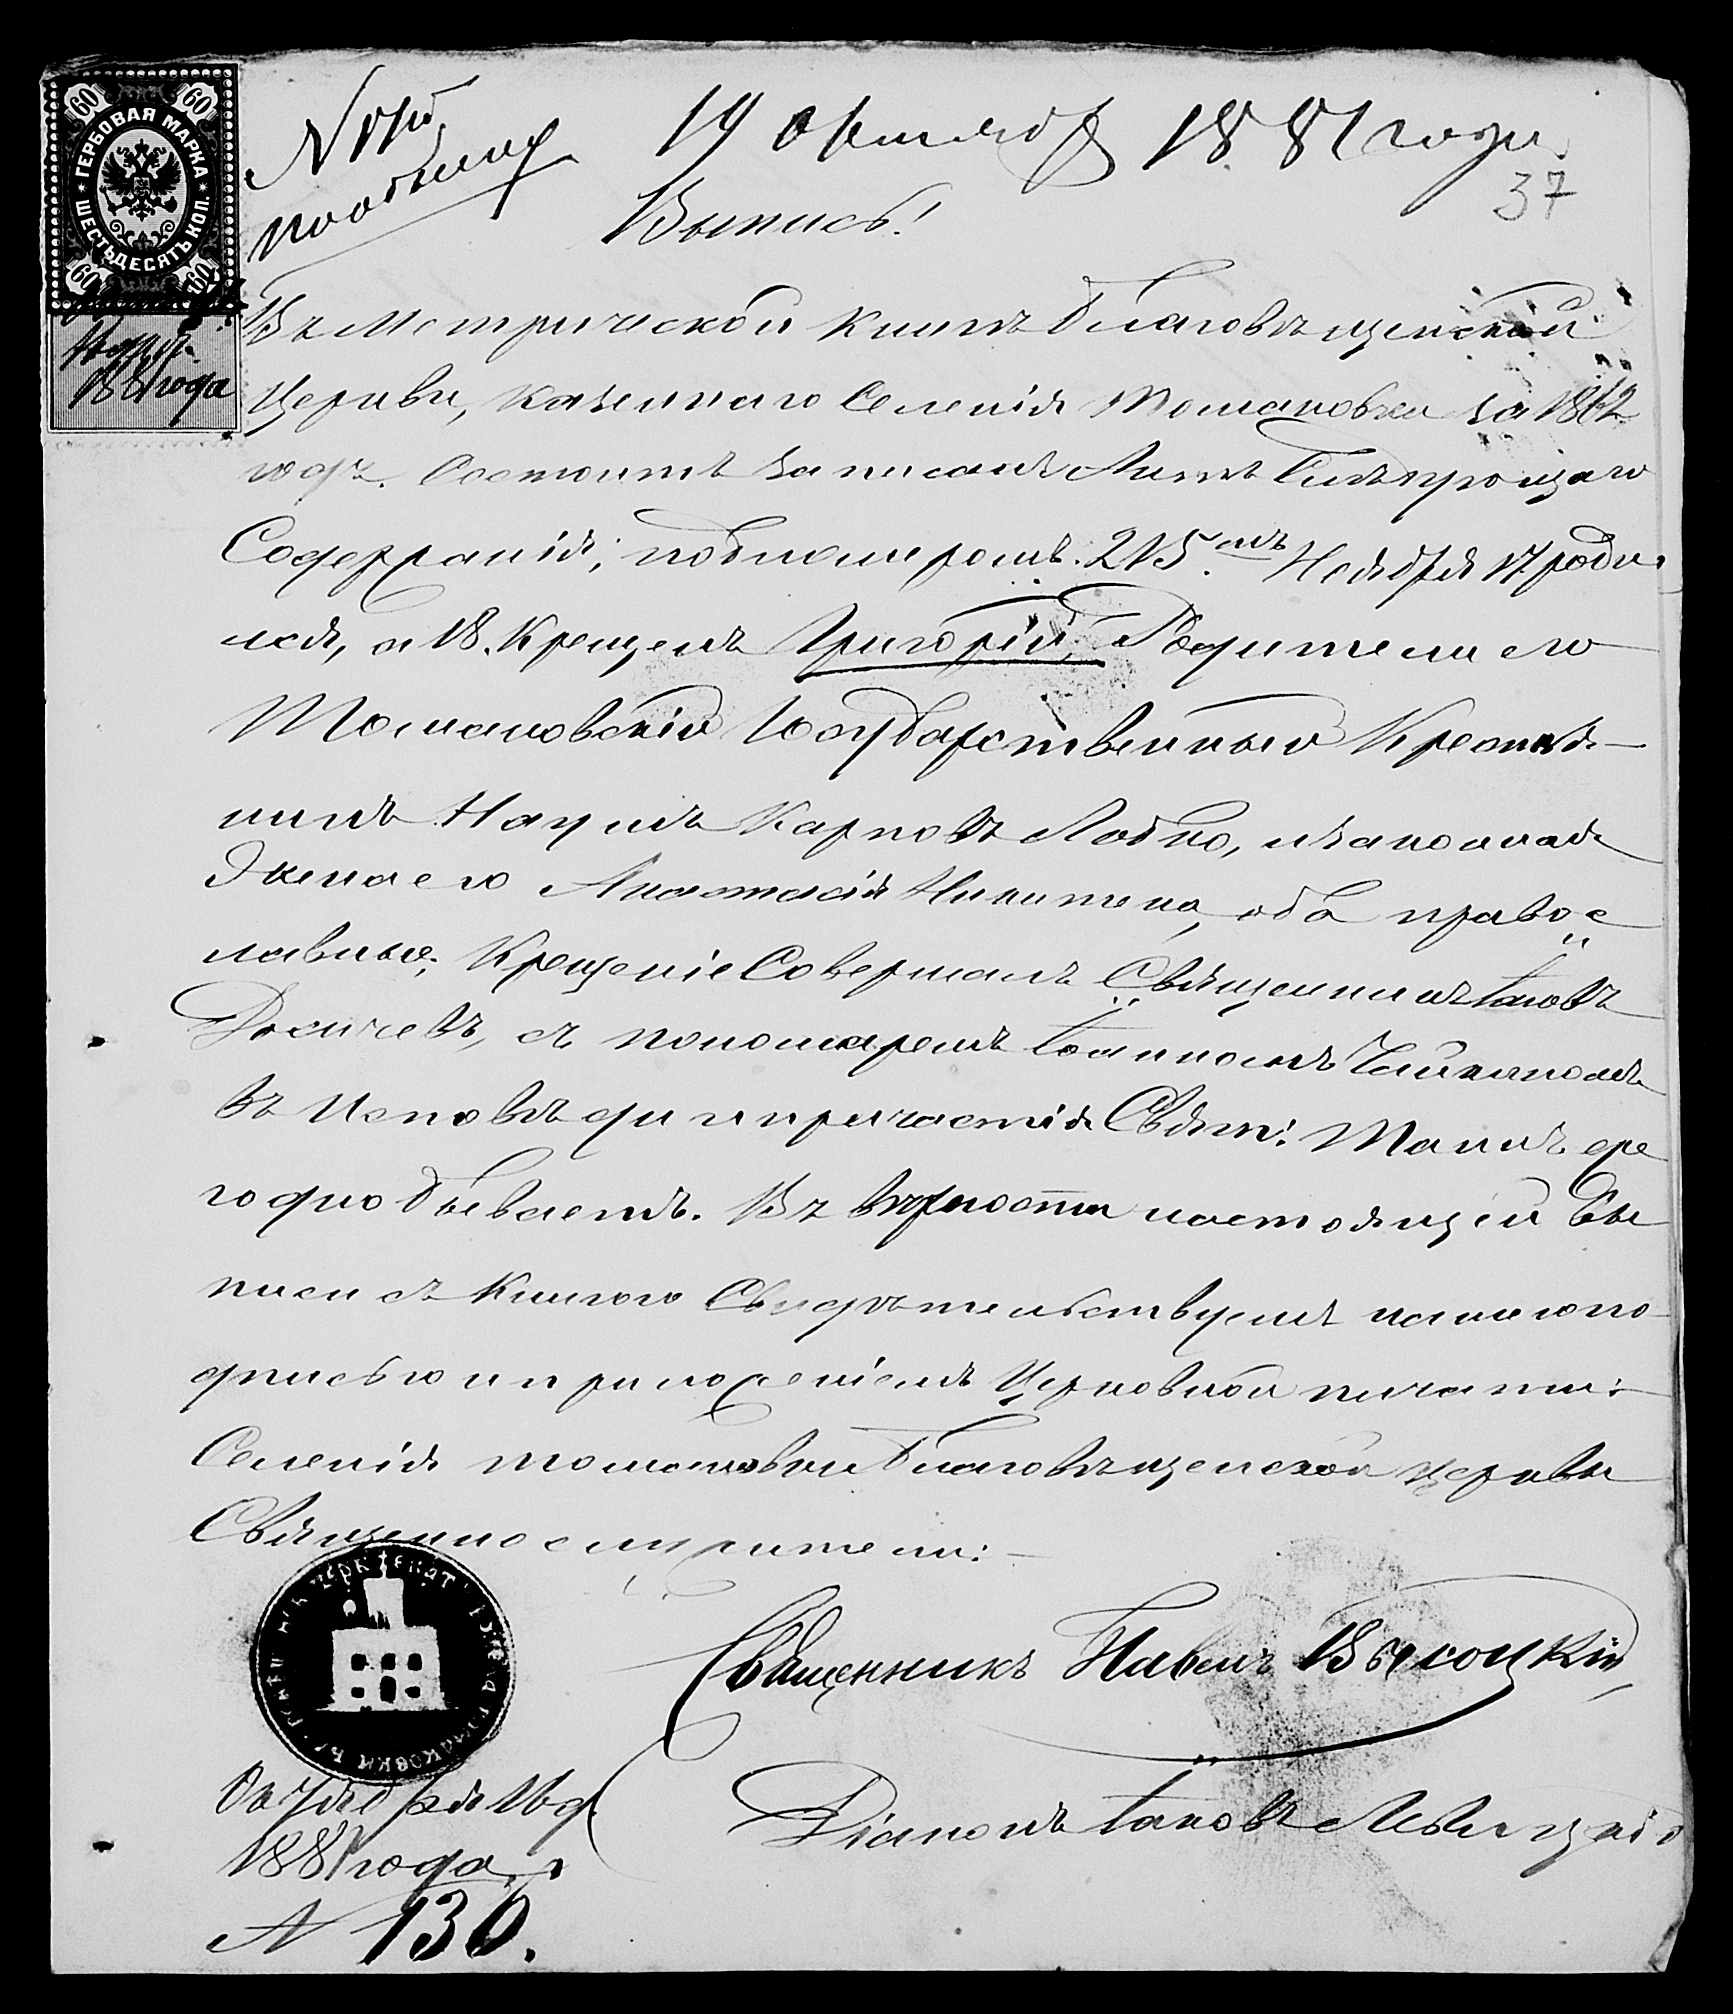 60 60
ГЕРБОВАЯ МАРКА
ШЕСТЬДЕСЯТЪ КОП.
60 60
1881 года
19 октября 1881 года
37
Выпись!
Въ Метрической книгѣ благовѣщенской
Церкви, казеннаго Селенія Томаковки за 1862
годъ. Состоитъ записанъ Актъ Слѣдующаго
Содержанія; подъ номеромъ. 215.мъ Ноября 17 роди-
лся, а 18. Крещенъ Григорій, Родители его
Томаковскій Государственный Крестья-
нинъ Наумъ Карповъ Лобко, и законная
жена его Анастасія Никитина, оба правос
лавные; Крещеніе Совершалъ Священникъ Іаковъ
съ пономаремъ Іоанномъ
въ Исповѣди и причастія Свят: Таинъ еже
годно бываетъ. Въ вѣрности настоящей Вы
писи съ Книгою Свидѣтельствуемъ нашею по-
дписью и приложеніемъ Церковной печати:
Селенія Томаковки Благовѣщенской церкви
Священнослужители:
Священникъ Павелъ Высоцкій
Діаконъ Іаковъ Левицкій
Октября 16 д.
1881 года
N 136.